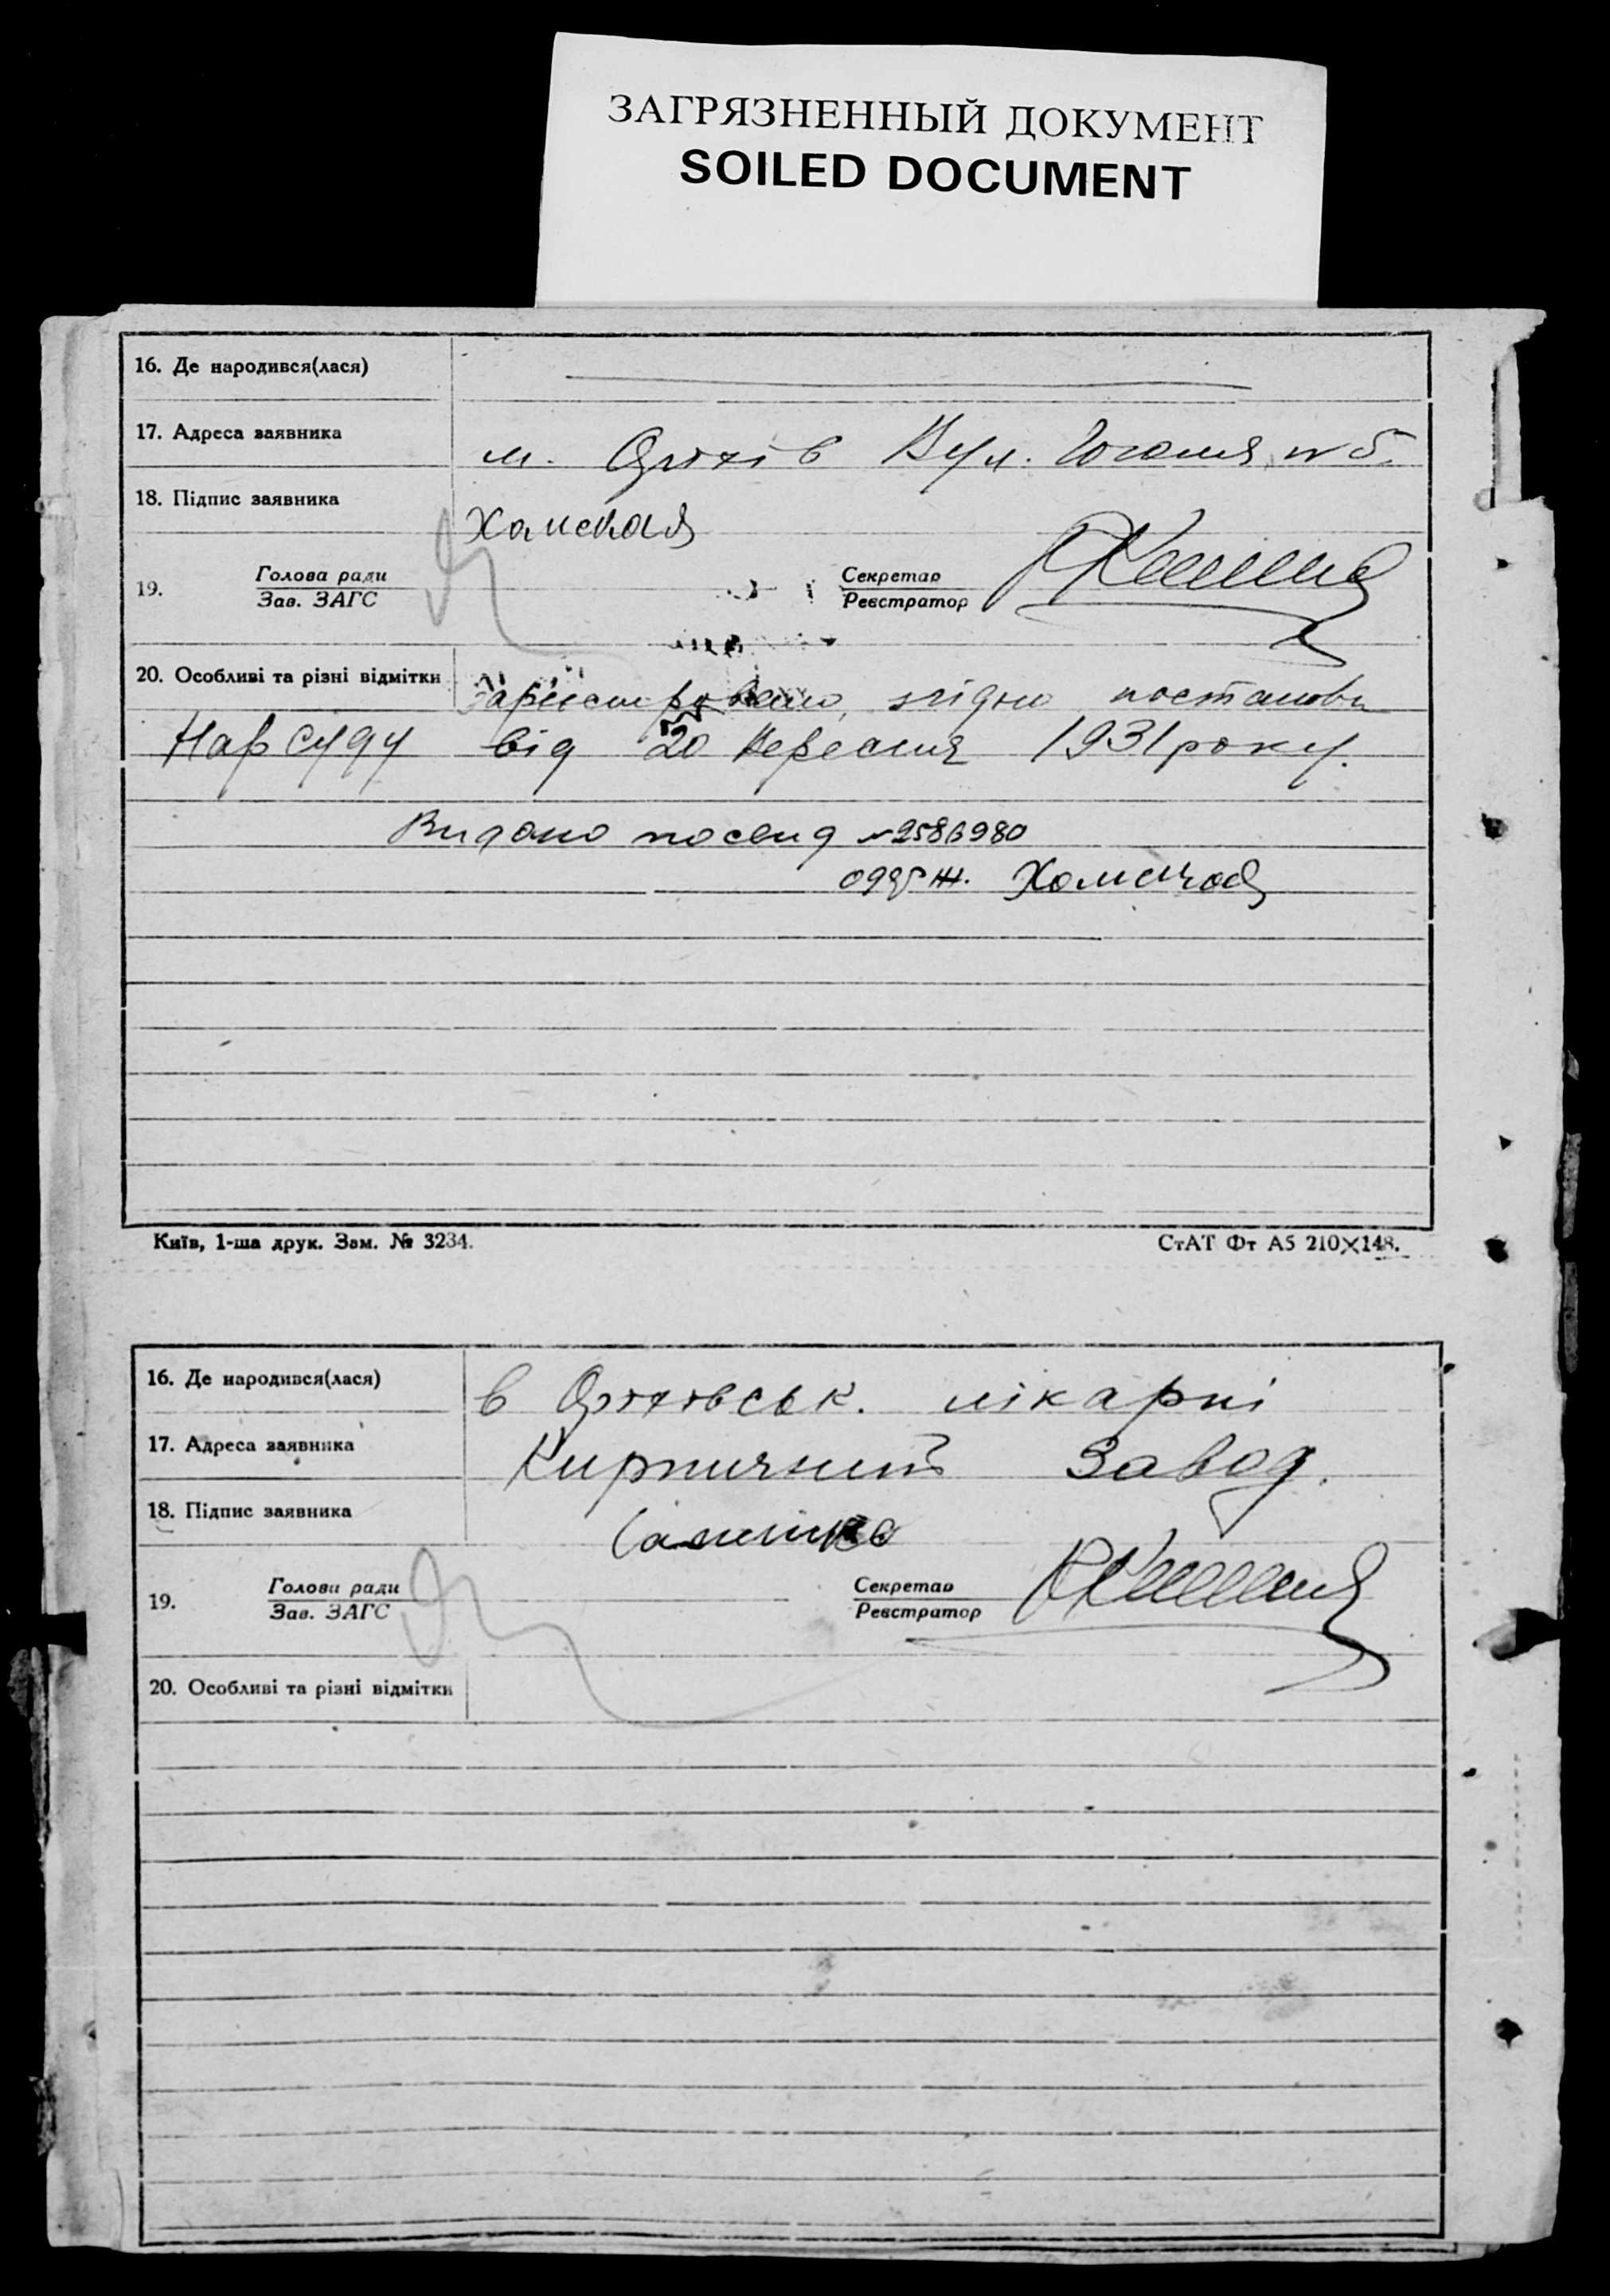 ЗАГРЯЗНЕННЫЙ ДОКУМЕНТ
SOILED DOCUMENT
16. Де народився(лася)
17. Адреса заявника
м. Оріхів Вул. Гоголя, № 5.
18. Підпис заявника
19. Голова ради
Зав. ЗАГС
Секретар
Реєстратор
20. Особливі та різні відмітки
згідно постанови
НарСуду від 20 Вересня 1931 року.
Видано посвид №
Київ, 1-ша друк. Зам. № 3234.
СтАТ Фт А5 210×148.
16. Де народився(лася)
в Оріхівськ. лікарні
17. Адреса заявника
Кирпичний Завод.
18. Підпис заявника
19. Голова ради
Зав. ЗАГС
Секретар
Реєстратор
20. Особливі та різні відмітки